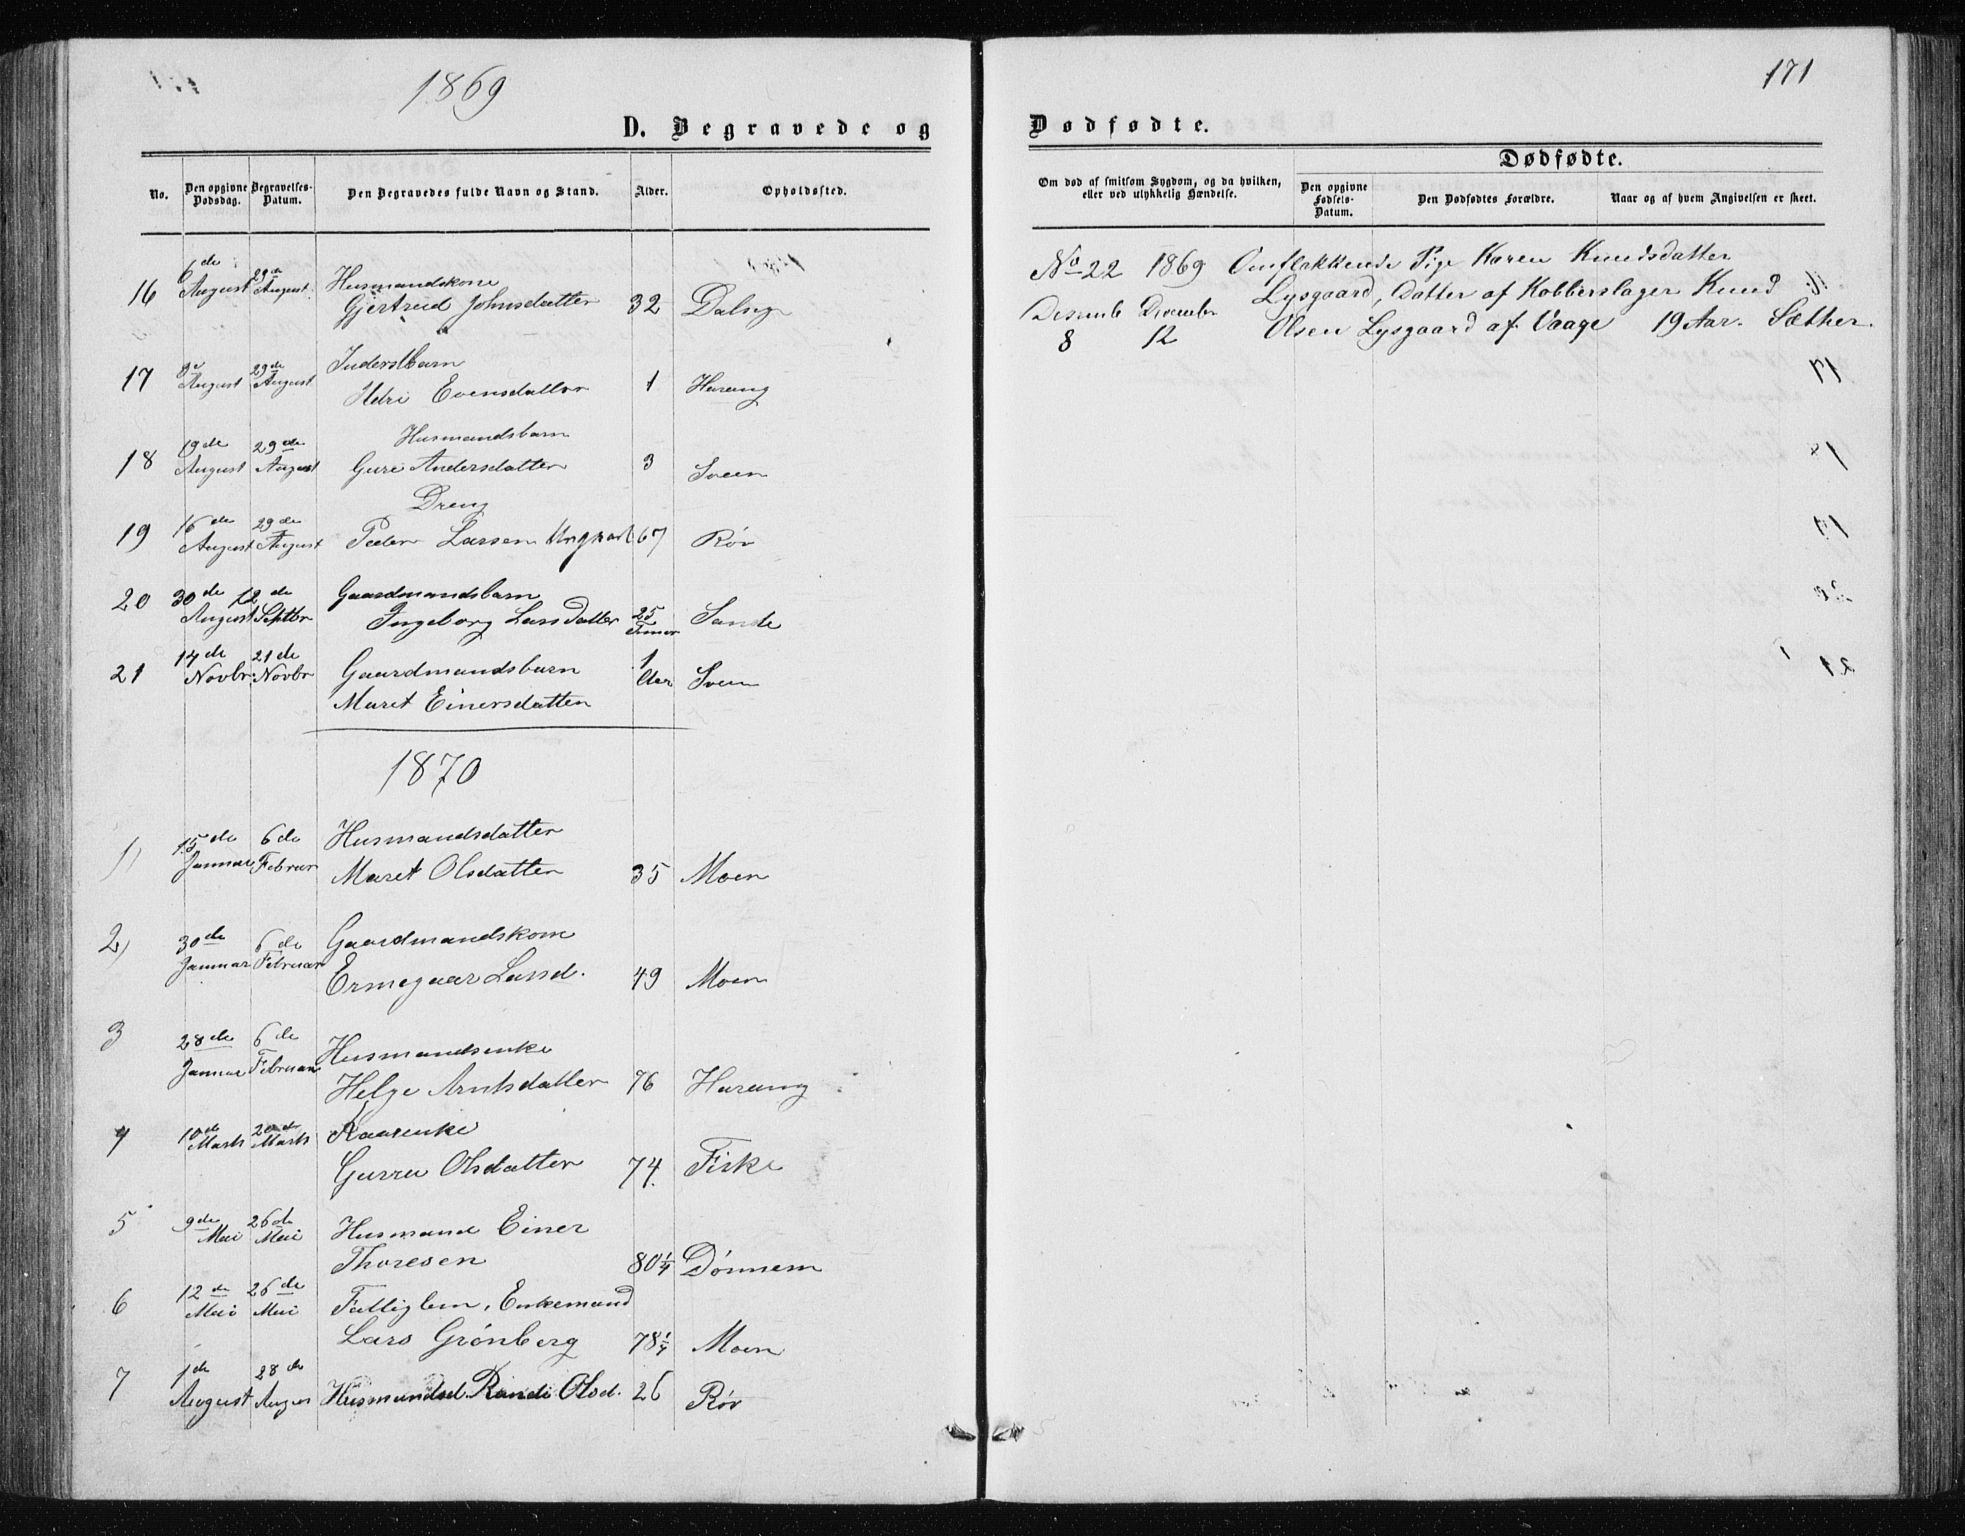 1869
D. Begravede og
No.
Den opgivne Dødsdag.
Begravelses-Datum.
Den Begravedes fulde Navn og Stand.
Alder.
Opholdssted.
16 6de August 29de August Husmandskone
Gjertrud Johnsdatter 32
17 August 29de August Inderstbarn
Evensdatter 1 Harang
18 19de August 29de August Husmandsbarn
Guri Andersdatter 3 Sveen
Dreng
19 16de August 29de August Peder Larsen 67 Rör
20 30de August 12de Septbr Gaardmandsbarn
Ingeborg Larsdatter 25 Timer Sande
21 14de Novbr. 21de Novbr Gaardmandsbarn 1 Aar Sveen
Maret Einersdatter
1870
1) 15de Januar 6de Februar Husmandsdatter
Maret Olsdatter 35 Moen
2) 30de Januar 6de Februar Gaardmandskone
Ermegaar Larsd. 49 Moen
3 28de Januar 6de Februar Husmandsenke
Helge Arntsdatter 76 Harang
4 10de Marts 20de Marts Kaarenke
Gurru Olsdatter 74. Fiske
5 9de Mai 26de Mai Husmand Einer
Thoresen 80 1/4 Dönnem
6 12de Mai 26de Mai Fattiglem, Enkemand
Lars Grönberg 78 1/4 Moen
7 1de August 28de August Husmandsd. Randi Olsd. 26 Rör
171
Dødfødte.
Om død af smitsom Sygdom, og da hvilken,
eller ved ulykkelig Hændelse.
Dødfødte.
Den opgivne Fødsels-Datum.
Den Dødfødtes Forældre.
Naar og af hvem Angivelsen er skeet.
No 22 1869 Omflakkende Pige Karen Knudsdatter
Lysgaard, Datter af Kobberslager Knud
Desemb 8 December 12 Olsen Lysgaard af Vaage 19 Aar. Sæther.